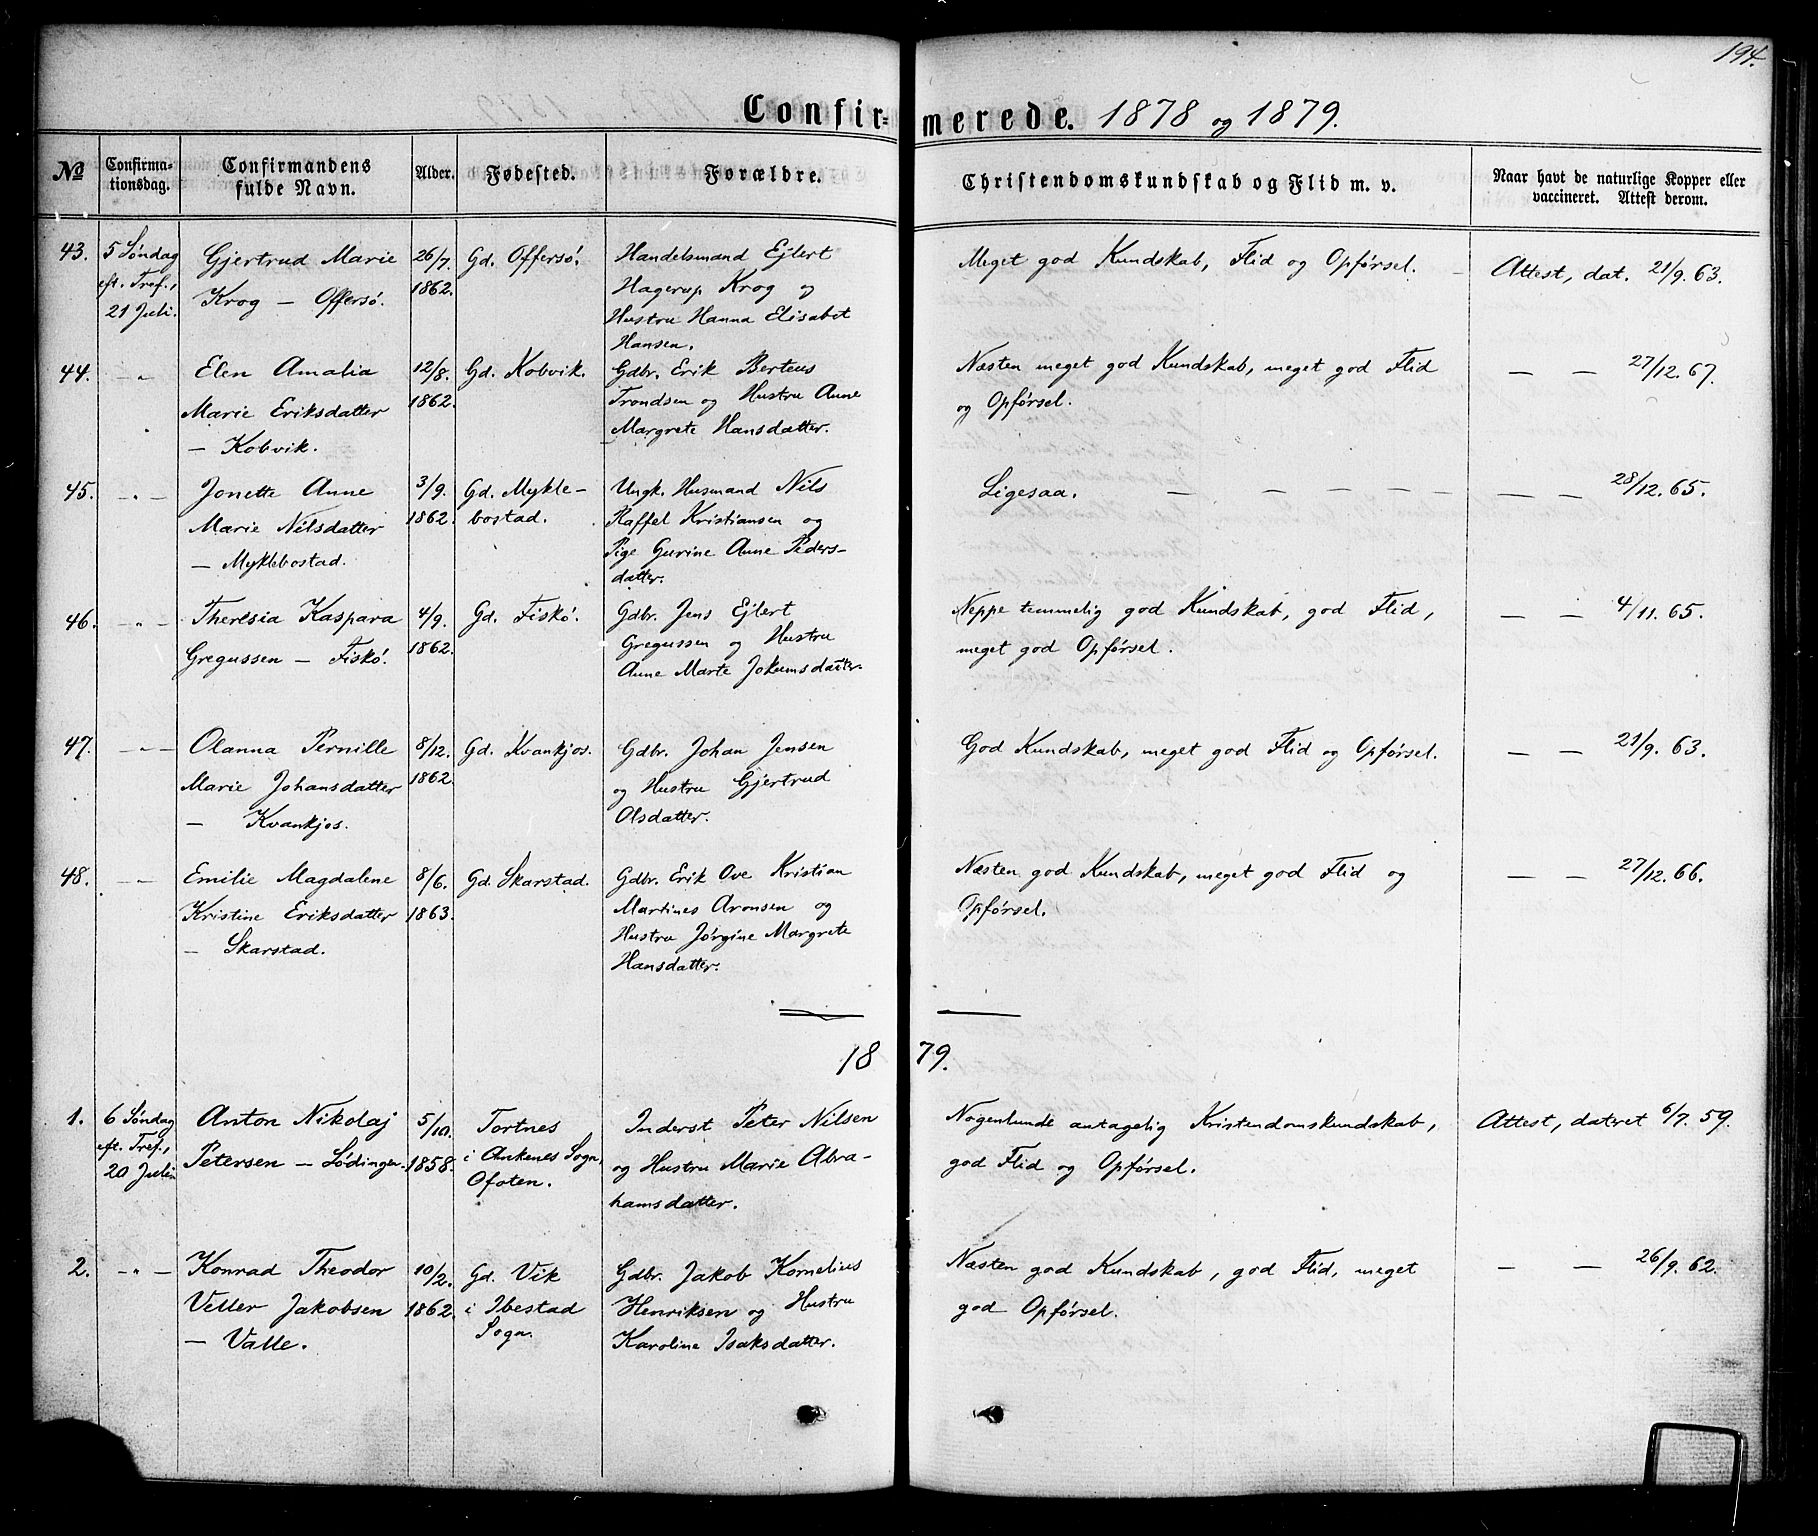 194.
Confirmerede. 1878 og 1879.
№ Confirmationsdag. Confirmandens fulde Navn. Alder. Fødested. Forældre. Christendomskundskab og Flid m. v. Naar havt de naturlige Kopper eller vaccineret. Attest derom.
43. 5 Søndag Gjertrud Marie 26/7. Gd. Offersø. Handelsmand Ejlert Meget god Kundskab, Flid og Opførsel. Attest, dat. 21/9. 63.
eft. Tref., Krog — Offersø. 1862. Hagerup Krog og
21 Juli. Hustru Hanna Elisabet
Hansen.
44. — „ Elen Amalia 12/8. Gd. Kobvik. Gdbr. Erik Berteus Næsten meget god Kundskab, meget god Flid — — 27/12. 67.
Marie Eriksdatter 1862. Trondsen og Hustru Anne og Opførsel.
— Kobvik. Margrete Hansdatter.
45. — „ — Jonette Anne 3/9. Gd. Mykle- Ungk. Husmand Nils Ligesaa. — — — — — — — 28/12. 65.
Marie Nilsdatter 1862. bostad. Raffel Kristiansen og
— Myklebostad. Pige Gurine Anne Peders-
datter.
46. — „ — Theresia Kaspara 4/9. Gd. Fiskø. Gdbr. Jens Ejlert Neppe temmelig god Kundskab, god Flid, — — 4/11. 65.
Gregussen — Fiskø. 1862. Gregussen og Hustru meget god Opførsel.
Anne Marte Jokumsdatter.
47. — „ — Olanna Pernille 8/12. Gd. Kvankjos. Gdbr. Johan Jensen God Kundskab, meget god Flid og Opførsel. — — 21/9. 63.
Marie Johansdatter 1862. og Hustru Gjertrud
— Kvankjos. Olsdatter.
48. — „ — Emilie Magdalene 8/6. Gd. Skarstad. Gdbr. Erik Ove Kristian Næsten god Kundskab, meget god Flid og — — 27/12. 66.
Kristine Eriksdatter 1863. Martines Aronsen og Opførsel.
— Skarstad. Hustru Jørgine Margrete
Hansdatter.
1879.
1. 6 Søndag Anton Nikolaj 5/10. Tortnes Inderst Peter Nilsen Nogenlunde antagelig Kristendomskundskab, Attest, dateret 6/7. 59.
eft. Tref., Petersen — Lødingen. 1858. i Ankenes Sogn, og Hustru Marie Abra- god Flid og Opførsel.
20 Juli. Ofoten. hamsdatter.
2. — „ — Konrad Theodor 10/2. Gd. Vik Gdbr. Jakob Kornelius Næsten god Kundskab, god Flid, meget — — 26/9. 62.
Veller Jakobsen 1862. i Ibestad Henriksen og Hustru god Opførsel.
— Valle. Sogn. Karoline Isaksdatter.